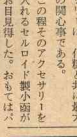 関心事である。
この程そのアクセサリーを
入れるセルロイド製小函が
お目見得した。おもてはパ